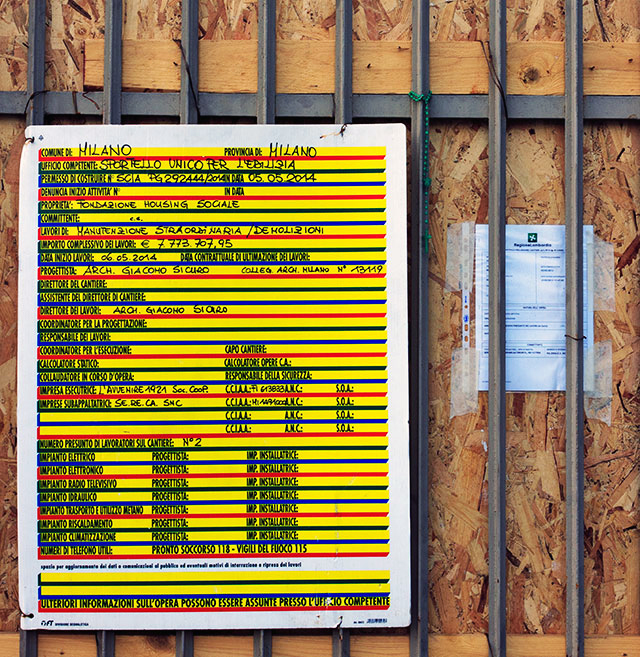 COMUNE DI: MILANO PROVINCIA DI: MILANO
UFFICIO COMPETENTE: SPORTELLO UNICO PER L'EDILIZIA
PERMESSO DI COSTRUIRE N° SCIA PG 292444/2014 IN DATA 05.05.2014
DENUNCIA INIZIO ATTIVITA' N° IN DATA
PROPRIETA': FONDAZIONE HOUSING SOCIALE
COMMITTENTE: c.s.
LAVORI DI: MANUTENZIONE STRAORDINARIA/DEMOLIZIONI
IMPORTO COMPLESSIVO DEI LAVORI: € 7 773.707,95
DATA INIZIO LAVORI: 06.05.2014 DATA CONTRATTUALE DI ULTIMAZIONE DEI LAVORI:
PROGETTISTA: ARCH. GIACOMO SICURO COLLEG. ARCH. MILANO N° 13119
DIRETTORE DEL CANTIERE:
ASSISTENTE DEL DIRETTORE DI CANTIERE:
DIRETTORE DEI LAVORI: ARCH. GIACOMO SICURO
COORDINATORE PER LA PROGETTAZIONE:
RESPONSABILE DEI LAVORI:
COORDINATORE PER L'ESECUZIONE: CAPO CANTIERE:
CALCOLATORE STATICO: CALCOLATORE OPERE C.A.:
COLLAUDATORE IN CORSO D'OPERA: RESPONSABILE DELLA SICUREZZA:
IMPRESA ESECUTRICE: L'AVVENIRE 1921 SOC. COOP. C.C.I.A.A.: A.N.C.: S.O.A.:
IMPRESE SUBAPPALTATRICI: SE.RE.CA. SNC C.C.I.A.A.: A.N.C.: S.O.A.:
C.C.I.A.A.: A.N.C.: S.O.A.:
C.C.I.A.A.: A.N.C.: S.O.A.:
NUMERO PRESUNTO DI LAVORATORI SUL CANTIERE: N° 2
IMPIANTO ELETTRICO PROGETTISTA: IMP. INSTALLATRICE:
IMPIANTO ELETTRONICO PROGETTISTA: IMP. INSTALLATRICE:
IMPIANTO RADIO TELEVISIVO PROGETTISTA: IMP. INSTALLATRICE:
IMPIANTO IDRAULICO PROGETTISTA: IMP. INSTALLATRICE:
IMPIANTO TRASPORTO E UTILIZZO METANO PROGETTISTA: IMP. INSTALLATRICE:
IMPIANTO RISCALDAMENTO PROGETTISTA: IMP. INSTALLATRICE:
IMPIANTO CLIMATIZZAZIONE PROGETTISTA: IMP. INSTALLATRICE:
NUMERI DI TELEFONO UTILI: PRONTO SOCCORSO 118 - VIGILI DEL FUOCO 115
spazio per aggiornamento dei dati o comunicazioni al pubblico ed eventuali motivi di interruzione o ripresa dei lavori
ULTERIORI INFORMAZIONI SULL'OPERA POSSONO ESSERE ASSUNTE PRESSO L'UFFICIO COMPETENTE
RegioneLombardia